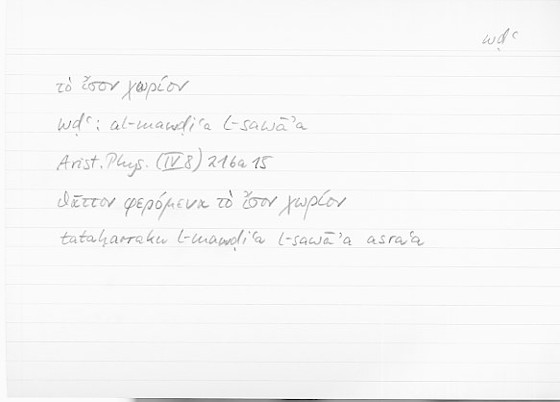 wḍʿ
τὸ ἴσον χωρίον
wḍʿ : al-mawḍiʿa l-sawāʾa
Arist. Phys. (IV 8) 216a15
θᾶττον φερόμενα τὸ ἴσον χωρίον
tataḥarraku l-mawḍiʿa l-sawāʾa asraʿa